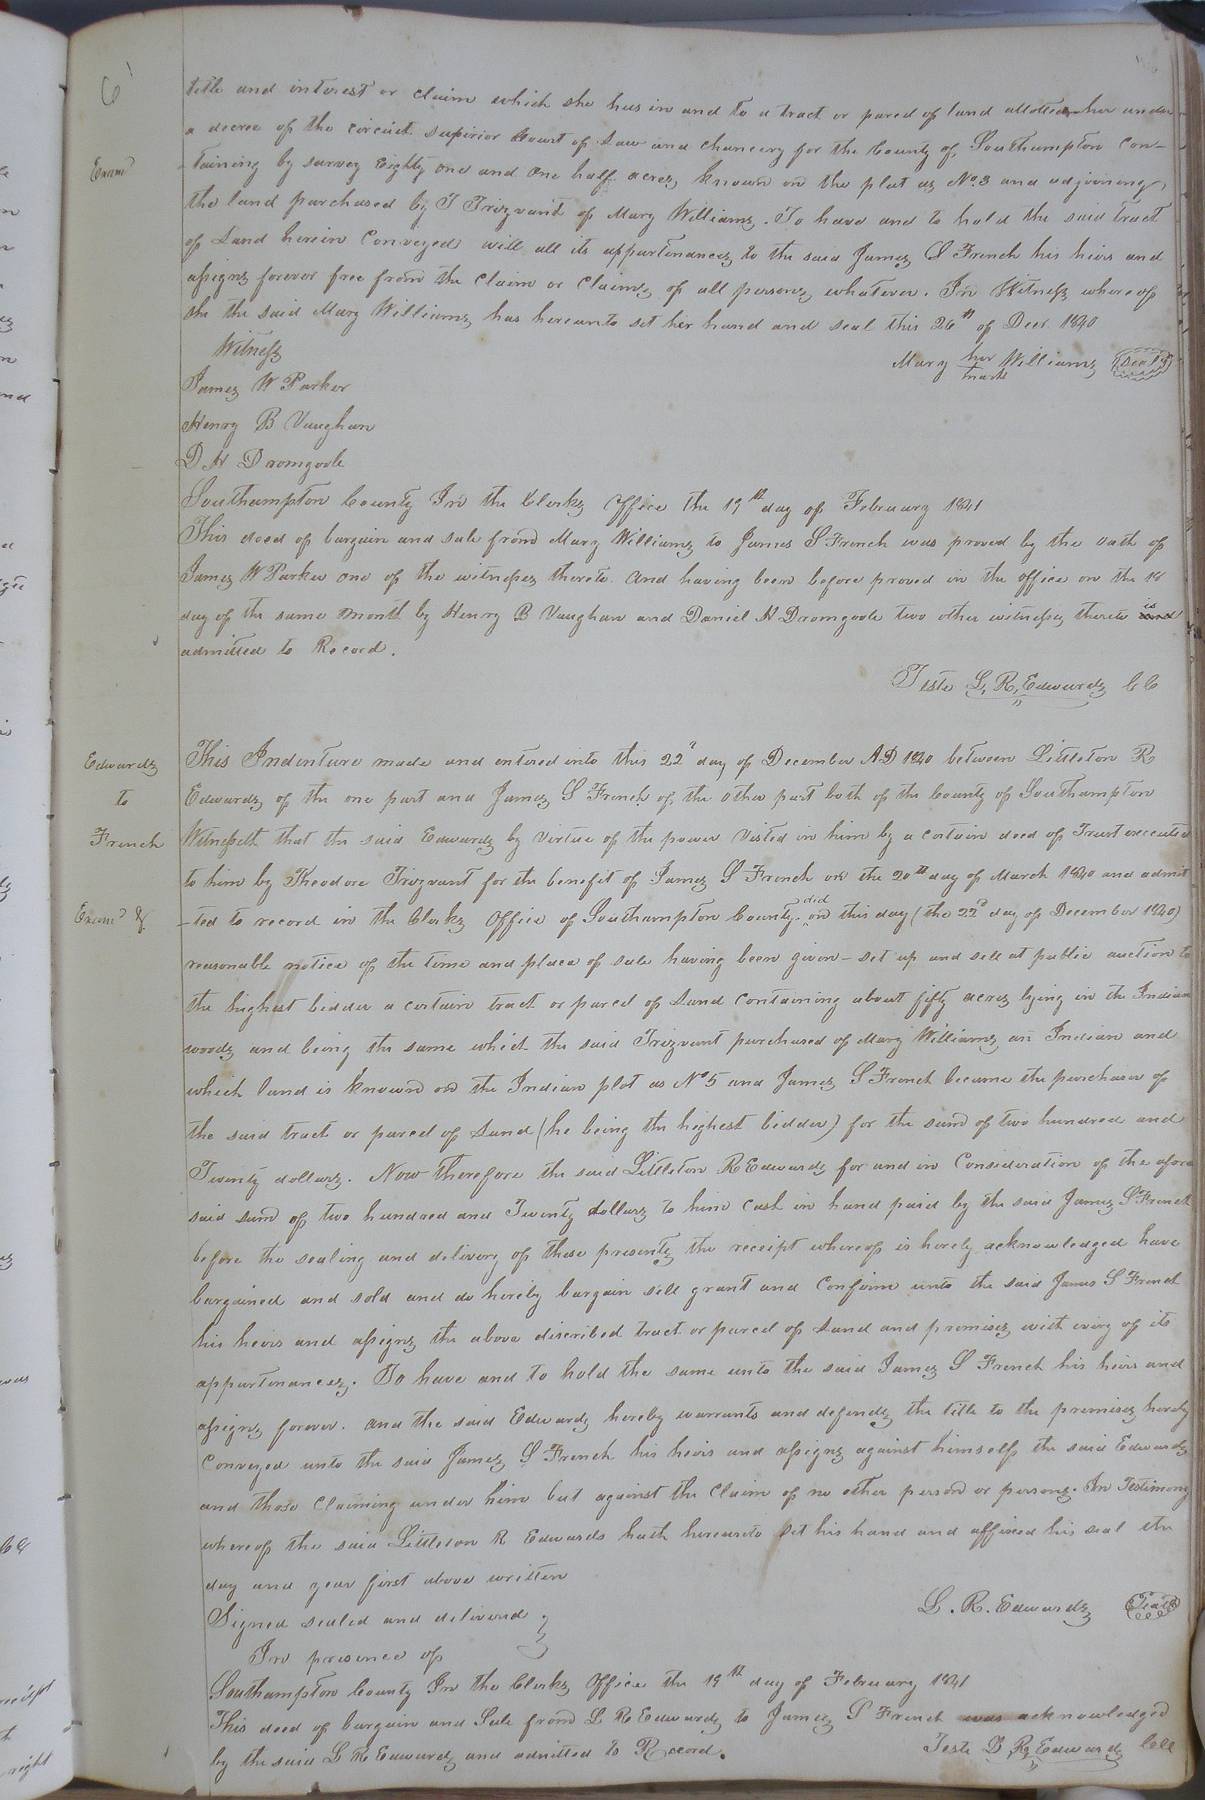 6
title and interest or claim which she has in and to a tract or parcel of land allotted her under
a decree of the circuit superior Court of Law and chancery for the County of Southampton con-
Exam^d
-taining by survey Eighty one and one half acres, known on the plat as No. 3 and adjoining
the land purchased by T Trezvant of Mary Williams. To have and to hold the said tract
of Land herein Conveyed with all its appurtenances to the said James S French his heirs and
assigns forever free from the Claim or Claims of all persons whatever. In Witness whereof
she the said Mary Williams has hereunto set her hand and seal this 26th of Decr. 1840
Witness
Mary her Williams (Seal)
mark
James W Parker
Henry B Vaughan
D H Dromgoole
Southampton County In the Clerks Office the 19th day of February 1841
This deed of bargain and sale from Mary Williams to James S French was proved by the oath of
James W Parker one of the witnesses thereto. and having been before proved in the office on the 18
day of the same month by Henry B Vaughan and Daniel H Dromgoole two other witnesses thereto is and
admitted to Record.
Teste L, R, Edwards CC
Edwards
to
French
This Indenture made and entered into this 22d day of December A.D 1840 between Littleton R
Edwards of the one part and James S French of the other part both of the County of Southampton
Witnesseth that the said Edwards by virtue of the power Vested in him by a certain deed of Trust executed
to him by Theodore Trezvant for the benefit of James S French on the 20th day of March 1840 and admit
Exam^d &
-ted to record in the Clerks Office of Southampton County did on this day (the 22d day of December 1840)
reasonable notice of the time and place of sale having been given - set up and sell at public auction to
the highest bidder a certain tract or parcel of Land containing about fifty acres lying in the Indian
woods and being the same which the said Trezvant purchased of Mary Williams an Indian and
which land is known on the Indian plot as No 5 and James S French became the purchaser of
the said tract or parcel of Land (he being the highest bidder) for the sum of two hundred and
Twenty dollars. Now therefore the said Littleton R Edwards for and in Consideration of the afore
said sum of two hundred and Twenty dollars to him cash in hand paid by the said James S French
before the sealing and delivery of these presents the receipt whereof is hereby acknowledged have
bargained and sold and do hereby bargain sell grant and Confirm unto the said James S French
his heirs and assigns the above discribed tract or parcel of Land and premises with every of its
appurtenances. To have and to hold the same unto the said James S French his heirs and
assigns forever. and the said Edwards hereby warrants and defends the title to the premises hereby
Conveyed unto the said James S French his heirs and assigns against himself the said Edwards
and those Claiming under him but against the Claim of no other person or persons. In Testimony
whereof the said Littleton R Edwards hath hereunto set his hand and affixed his seal the
day and year first above written
Signed sealed and delivered
L. R. Edwards (Seal)
In presence of
Southampton County In the Clerks Office the 19th day of February 1841
This deed of bargain and Sale from L R Edwards to James S French was acknowledged
by the said L R Edwards and admitted to Record.
Teste L R, Edwards CCC